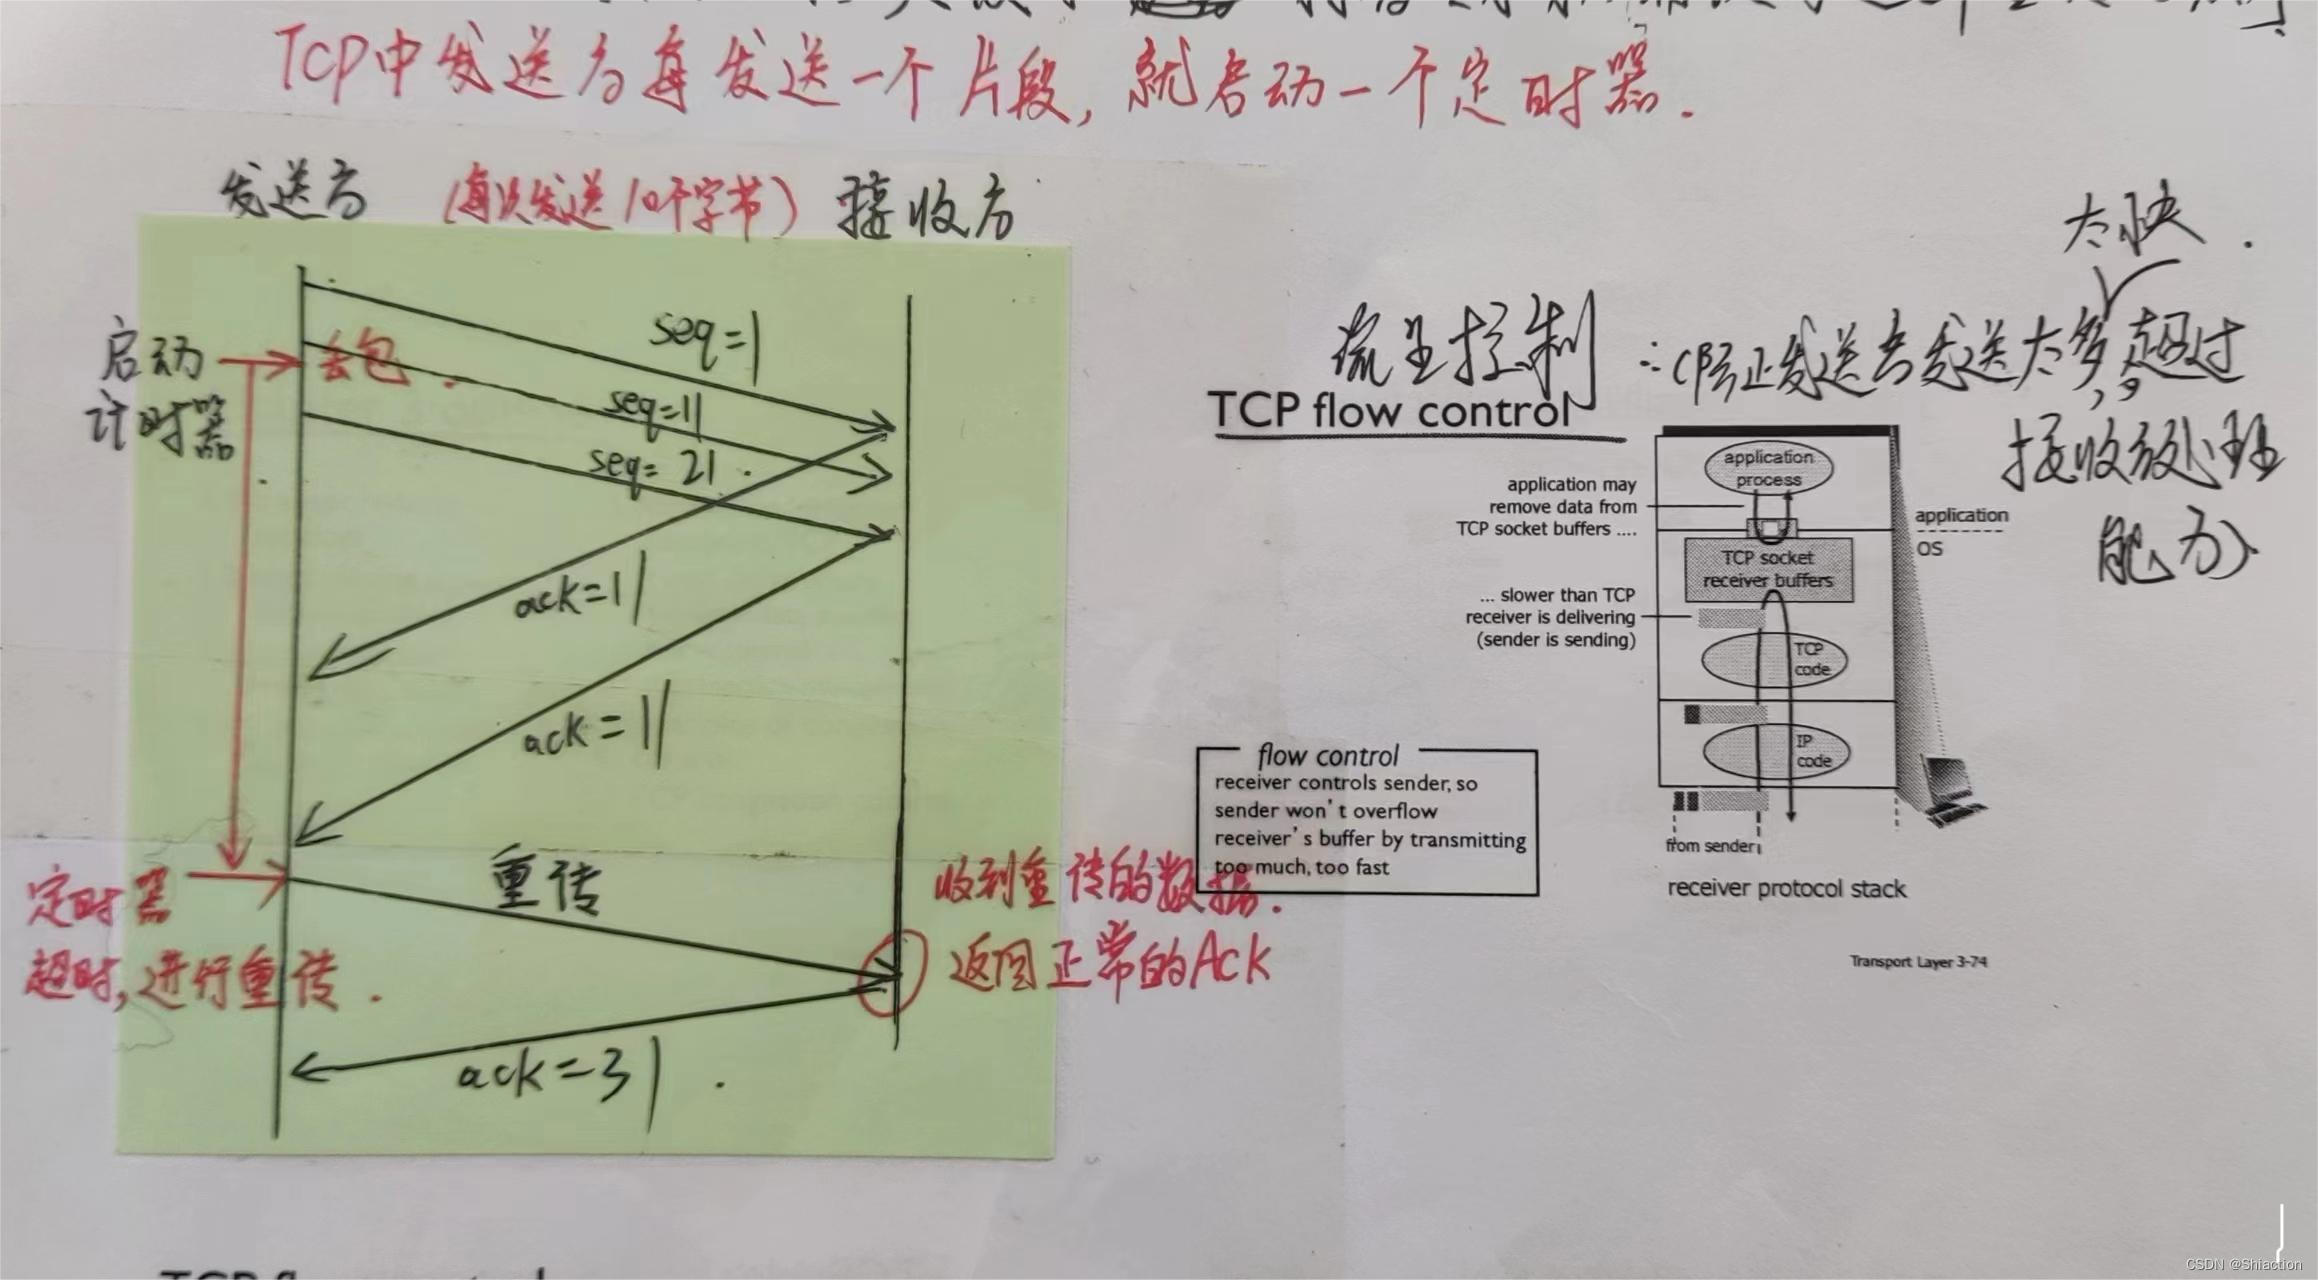 TCP中发送方每发送一个片段,就启动一个定时器.
发送方 (每次发送10个字节) 接收方
启动
计时器
丢包.
seq=1
seq=11
seq=21
ack=11
ack=11
定时器
超时,进行重传.
重传
收到重传的数据.
返回正常的Ack
ack=31
太快.
流量控制
发送者发送太多,超过
接收方处理
能力
TCP flow control
application
process
application may
remove data from
TCP socket buffers ....
TCP socket
receiver buffers
application
OS
... slower than TCP
receiver is delivering
(sender is sending)
TCP
code
IP
code
from sender
receiver protocol stack
flow control
receiver controls sender, so
sender won't overflow
receiver's buffer by transmitting
too much, too fast
Transport Layer 3-74
CSDN @Shiaction